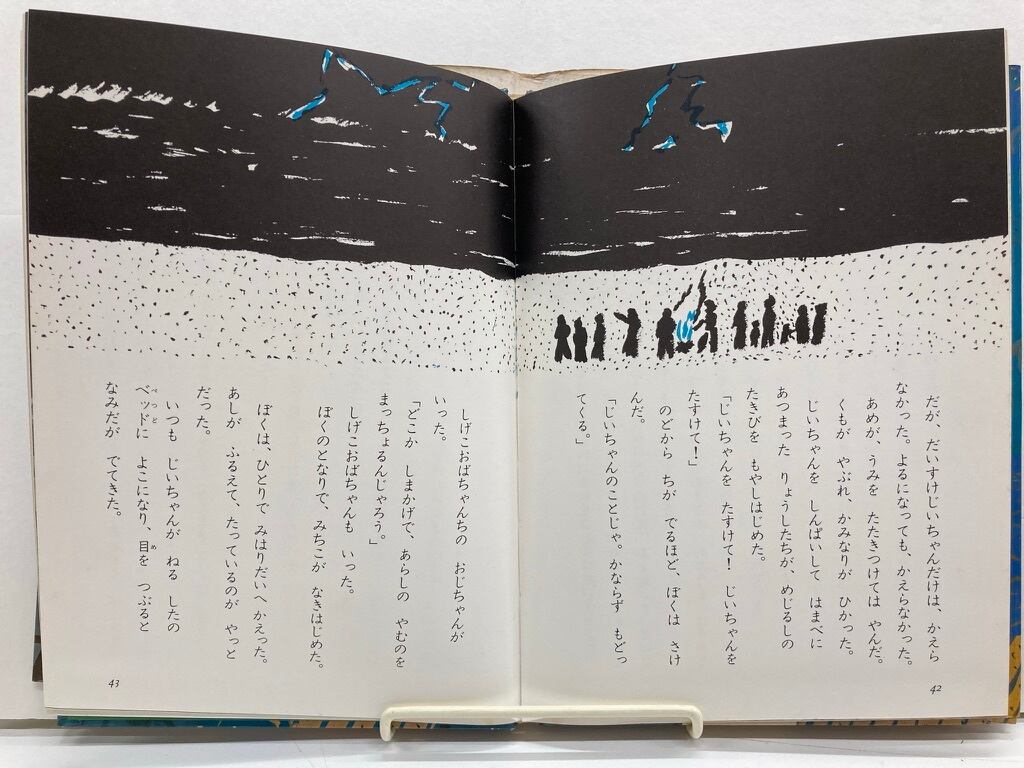 だが、だいすけじいちゃんだけは、かえら
なかった。よるになっても、かえらなかった。
あめが、うみを　たたきつけては　やんだ。
くもが　やぶれ、かみなりが　ひかった。
じいちゃんを　しんぱいして　はまべに
あつまった　りょうしたちが、めじるしの
たきびを　もやしはじめた。
「じいちゃんを　たすけて！　じいちゃんを
たすけて！」
のどから　ちが　でるほど、ぼくは　さけ
んだ。
「じいちゃんのことじゃ。かならず　もどっ
てくる。」
42
しげこおばちゃんちの　おじちゃんが
いった。
「どこか　しまかげで、あらしの　やむのを
まっちょるんじゃろう。」
しげこおばちゃんも　いった。
ぼくのとなりで、みちこが　なきはじめた。
ぼくは、ひとりで　みはりだいへ　かえった。
あしが　ふるえて、たっているのが　やっと
だった。
いつも　じいちゃんが　ねる　したの
ベッドに　よこになり、目を　つぶると
なみだが　でてきた。
43